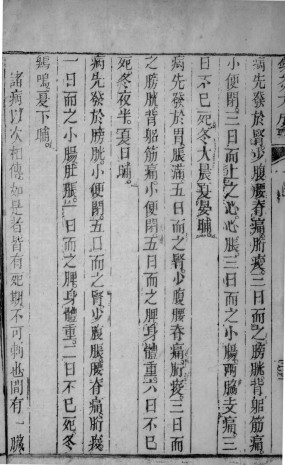 病先發於腎少腹腰脊痛䯒痠三日而之膀胱背䏚筋痛
小便閉三日而上之心心脹三日而之小腸兩脇支痛三
日不已死冬大晨夏晏晡
病先發於胃脹滿五日而之腎少腹腰脊痛䯒痠三日而
之膀胱背䏚筋痛小便閉五日而之脾身體重六日不已
死冬夜半夏日晡
病先發於膀胱小便閉五日而之腎少腹脹腰脊痛䯒痠
一日而之小腸肚脹一日而之脾身體重二日不已死冬
鷄鳴夏下晡
諸病以次相傳如是者皆有死期不可刺也間有一臟